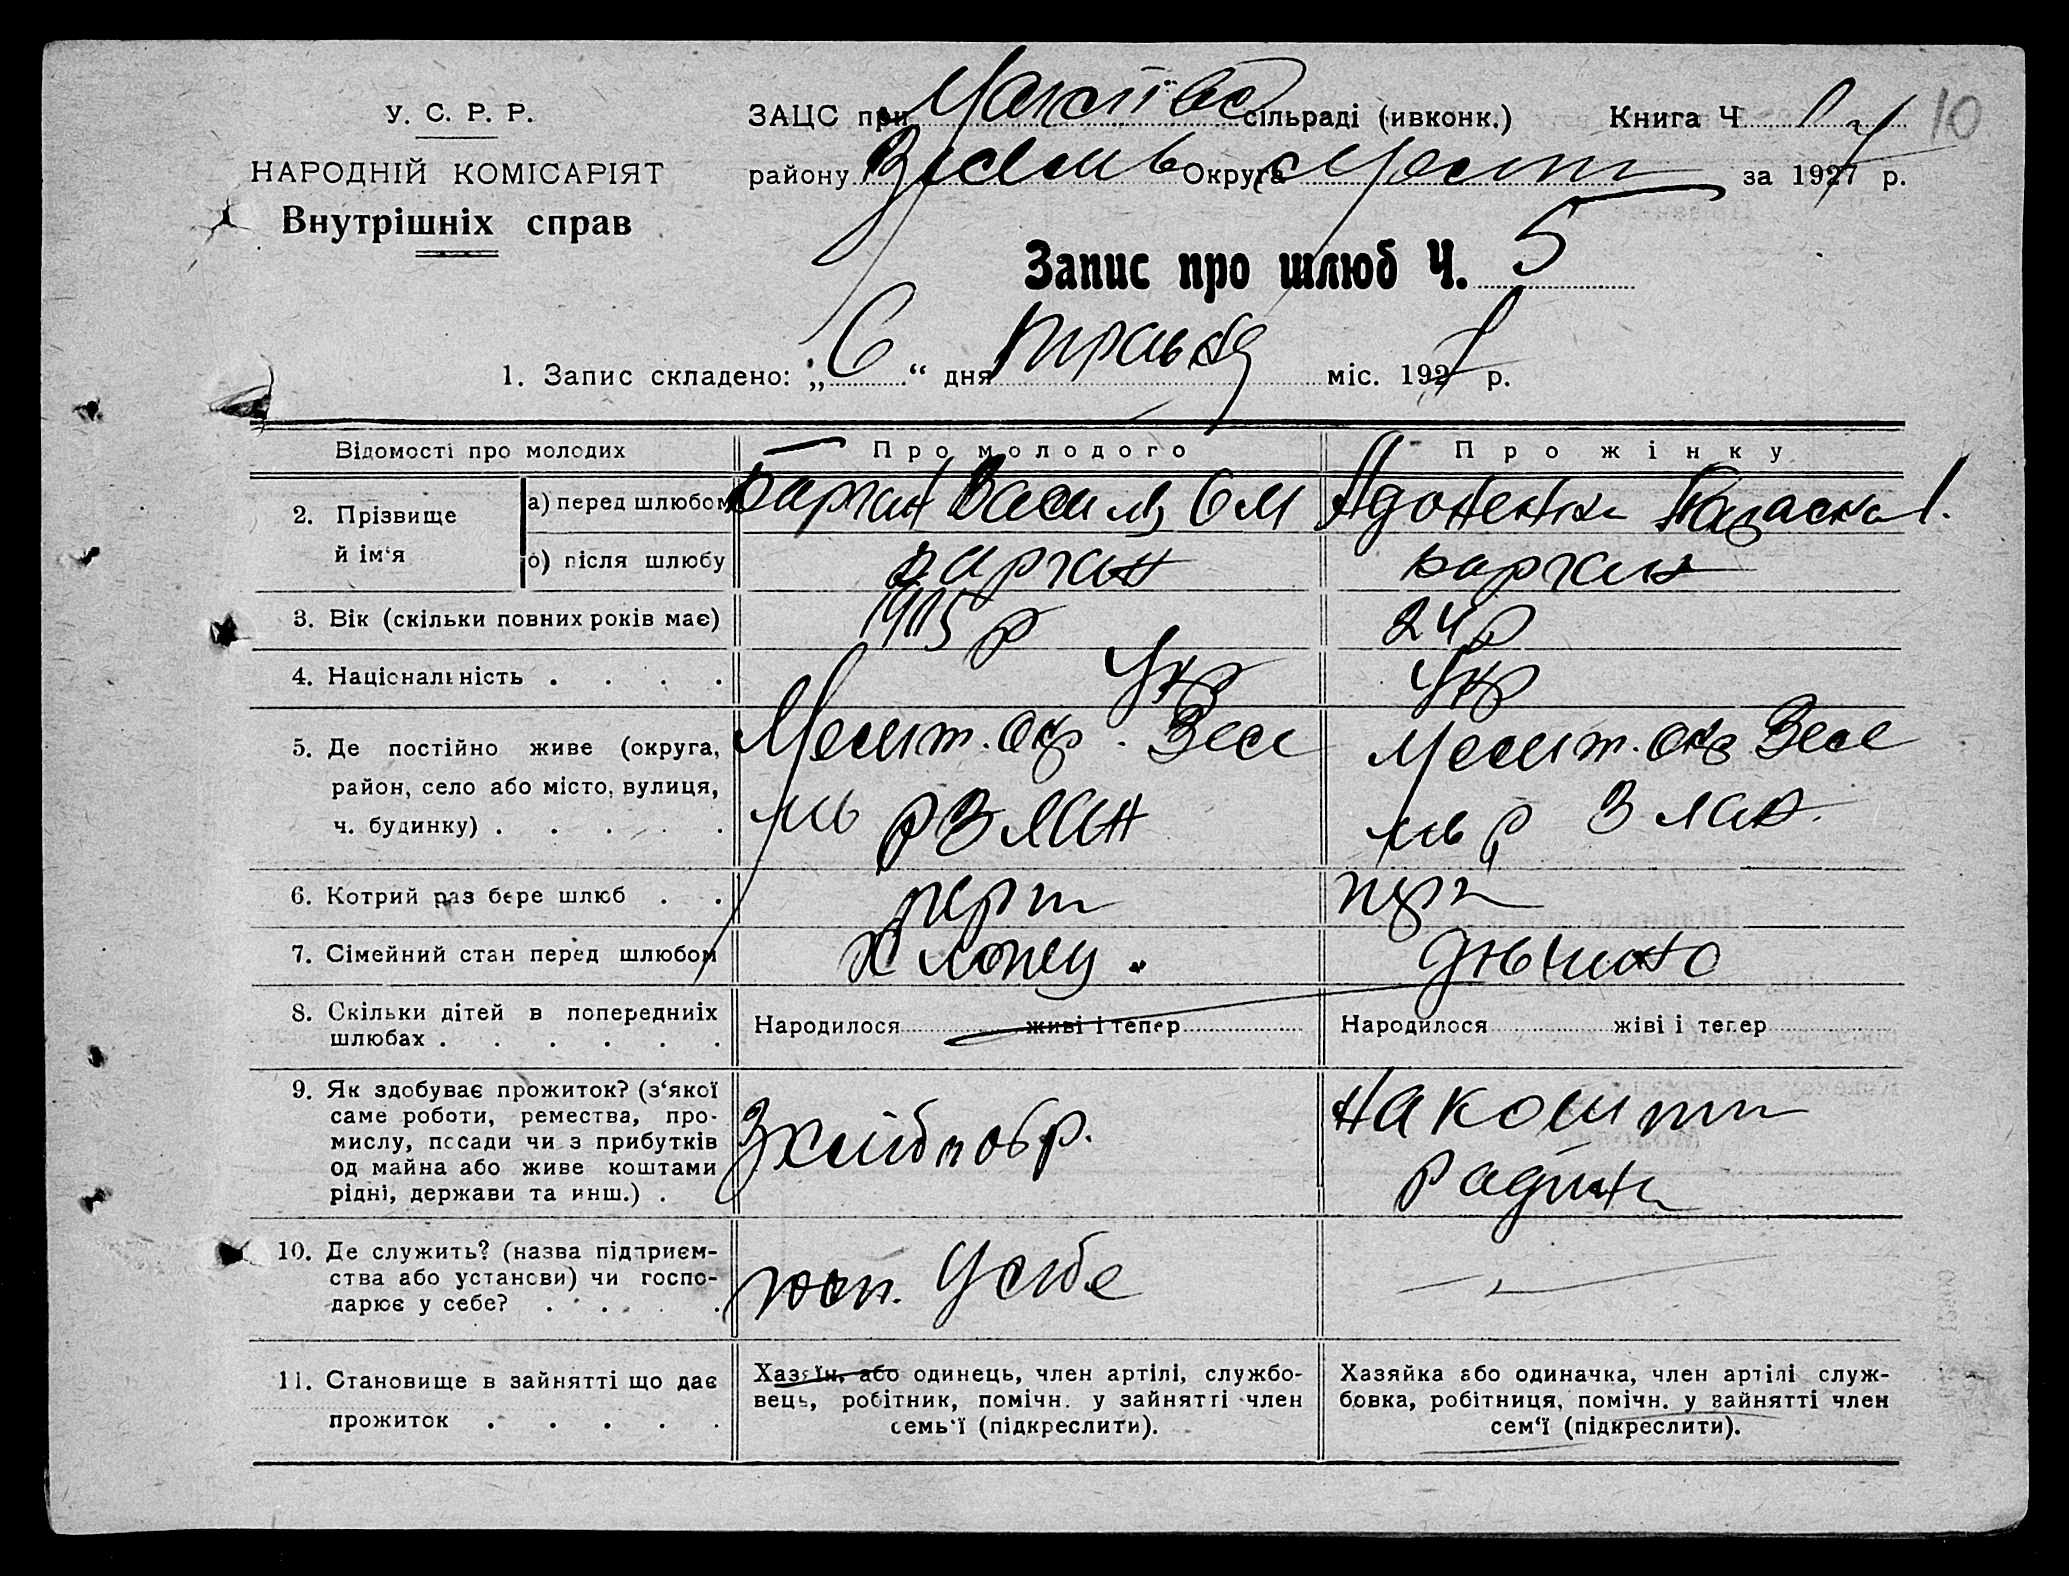 У. С. Р. Р.
НАРОДНІЙ КОМІСАРІЯТ
Внутрішніх справ
10
ЗАЦС при сільраді (ивконк.) Книга Ч
району Округа за 1927 р.
Запис про шлюб Ч. 5
1. Запис складено: „6“ дня травня міс. 1927 р.
Відомості про молодих Про молодого Про жінку
2. Прізвище й ім‘я
а) перед шлюбом Барган Василь Ом
б) після шлюбу Барган Барган
3. Вік (скільки повних років має) р 24 р
4. Національність . . . . Укр Укр
5. Де постійно живе (округа, Меліт. окр. Весе Меліт. окр Весе
район, село або місто, вулиця,
ч. будинку) . . . . . .
6. Котрий раз бере шлюб . . перш
7. Сімейний стан перед шлюбом Хлопец. дівчина
8. Скільки дітей в попередніх Народилося живі і тепер Народилося жіві і тепер
шлюбах . . . . . .
9. Як здобуває прожиток? (з‘якої На кошти
саме роботи, ремества, про-
мислу, посади чи з прибутків Зхлібороб.
од майна або живе коштами родини
рідні, держави та инш.) .
10. Де служить? (назва підприєм-
ства або установи) чи госпо- госп. У себе
дарює у себе? . . . .
11. Становище в зайнятті що дає Хазяїн, або одинець, член артілі, службо- Хазяйка або одиначка, член артілі служ-
прожиток . . . . . вець, робітник, помічн. у зайнятті член бовка, робітниця, помічн. у зайнятті член
семь‘ї (підкреслити). сем‘ї (підкреслити).